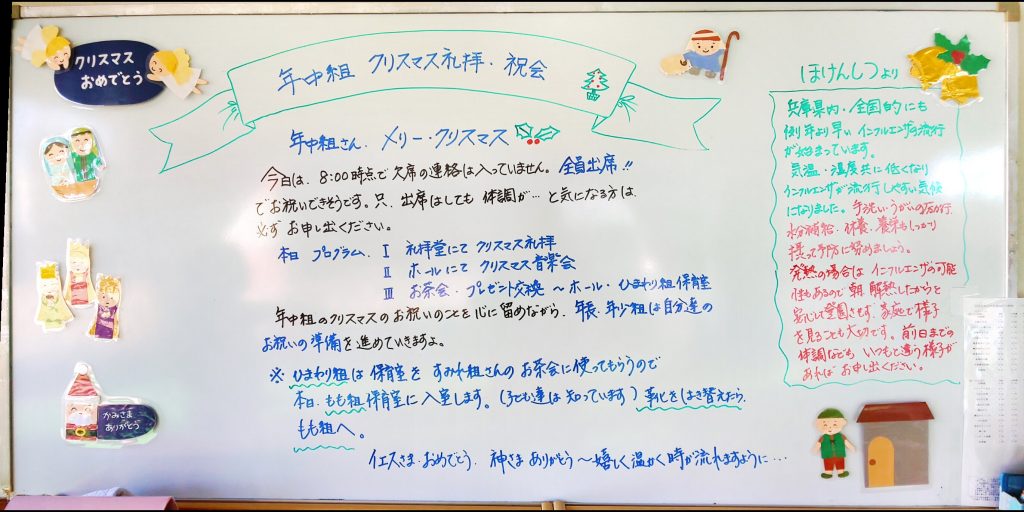 クリスマス
おめでとう
年中組 クリスマス礼拝・祝会
年中組さん、メリー・クリスマス
今日は、8:00時点で欠席の連絡は入っていません。全員出席!!
でお祝いできそうです。只、出席はしても 体調が… と気になる方は、
必ず お申し出ください。
本日 プログラム、Ⅰ 礼拝堂にて クリスマス礼拝
Ⅱ ホールにて クリスマス音楽会
Ⅲ お茶会・プレゼント交換 〜 ホール・ひまわり組保育室
年中組のクリスマスのお祝いのことを心に留めながら、年長・年少組は自分達の
お祝いの準備を進めていきますよ。
※ ひまわり組は 保育室を すみれ組さんの お茶会に使ってもらうので
本日、もも組保育室に入室します。(子ども達は 知っています) 革化をはき替えたら、
もも組へ。
イエスさま・おめでとう、神さま ありがとう〜嬉しく温かく時が流れますように…
かみさま
ありがとう
ほけんしつより
兵庫県内・全国的にも
例年より早い インフルエンザの流行
が始まっています。
気温・湿度共に低くなり
インフルエンザが流行しやすい気候
になりました。手洗い・うがいの励行、
水分補給・休養・養栄もしっかり
摂って予防に努めましょう。
発熱の場合は インフルエンザの可能
性もあるので 朝、解熱したからと
安心して登園させず、家庭で様子
を見ることも大切です。前日までの
体調なども いつもと違う様子が
あれば お申し出ください。